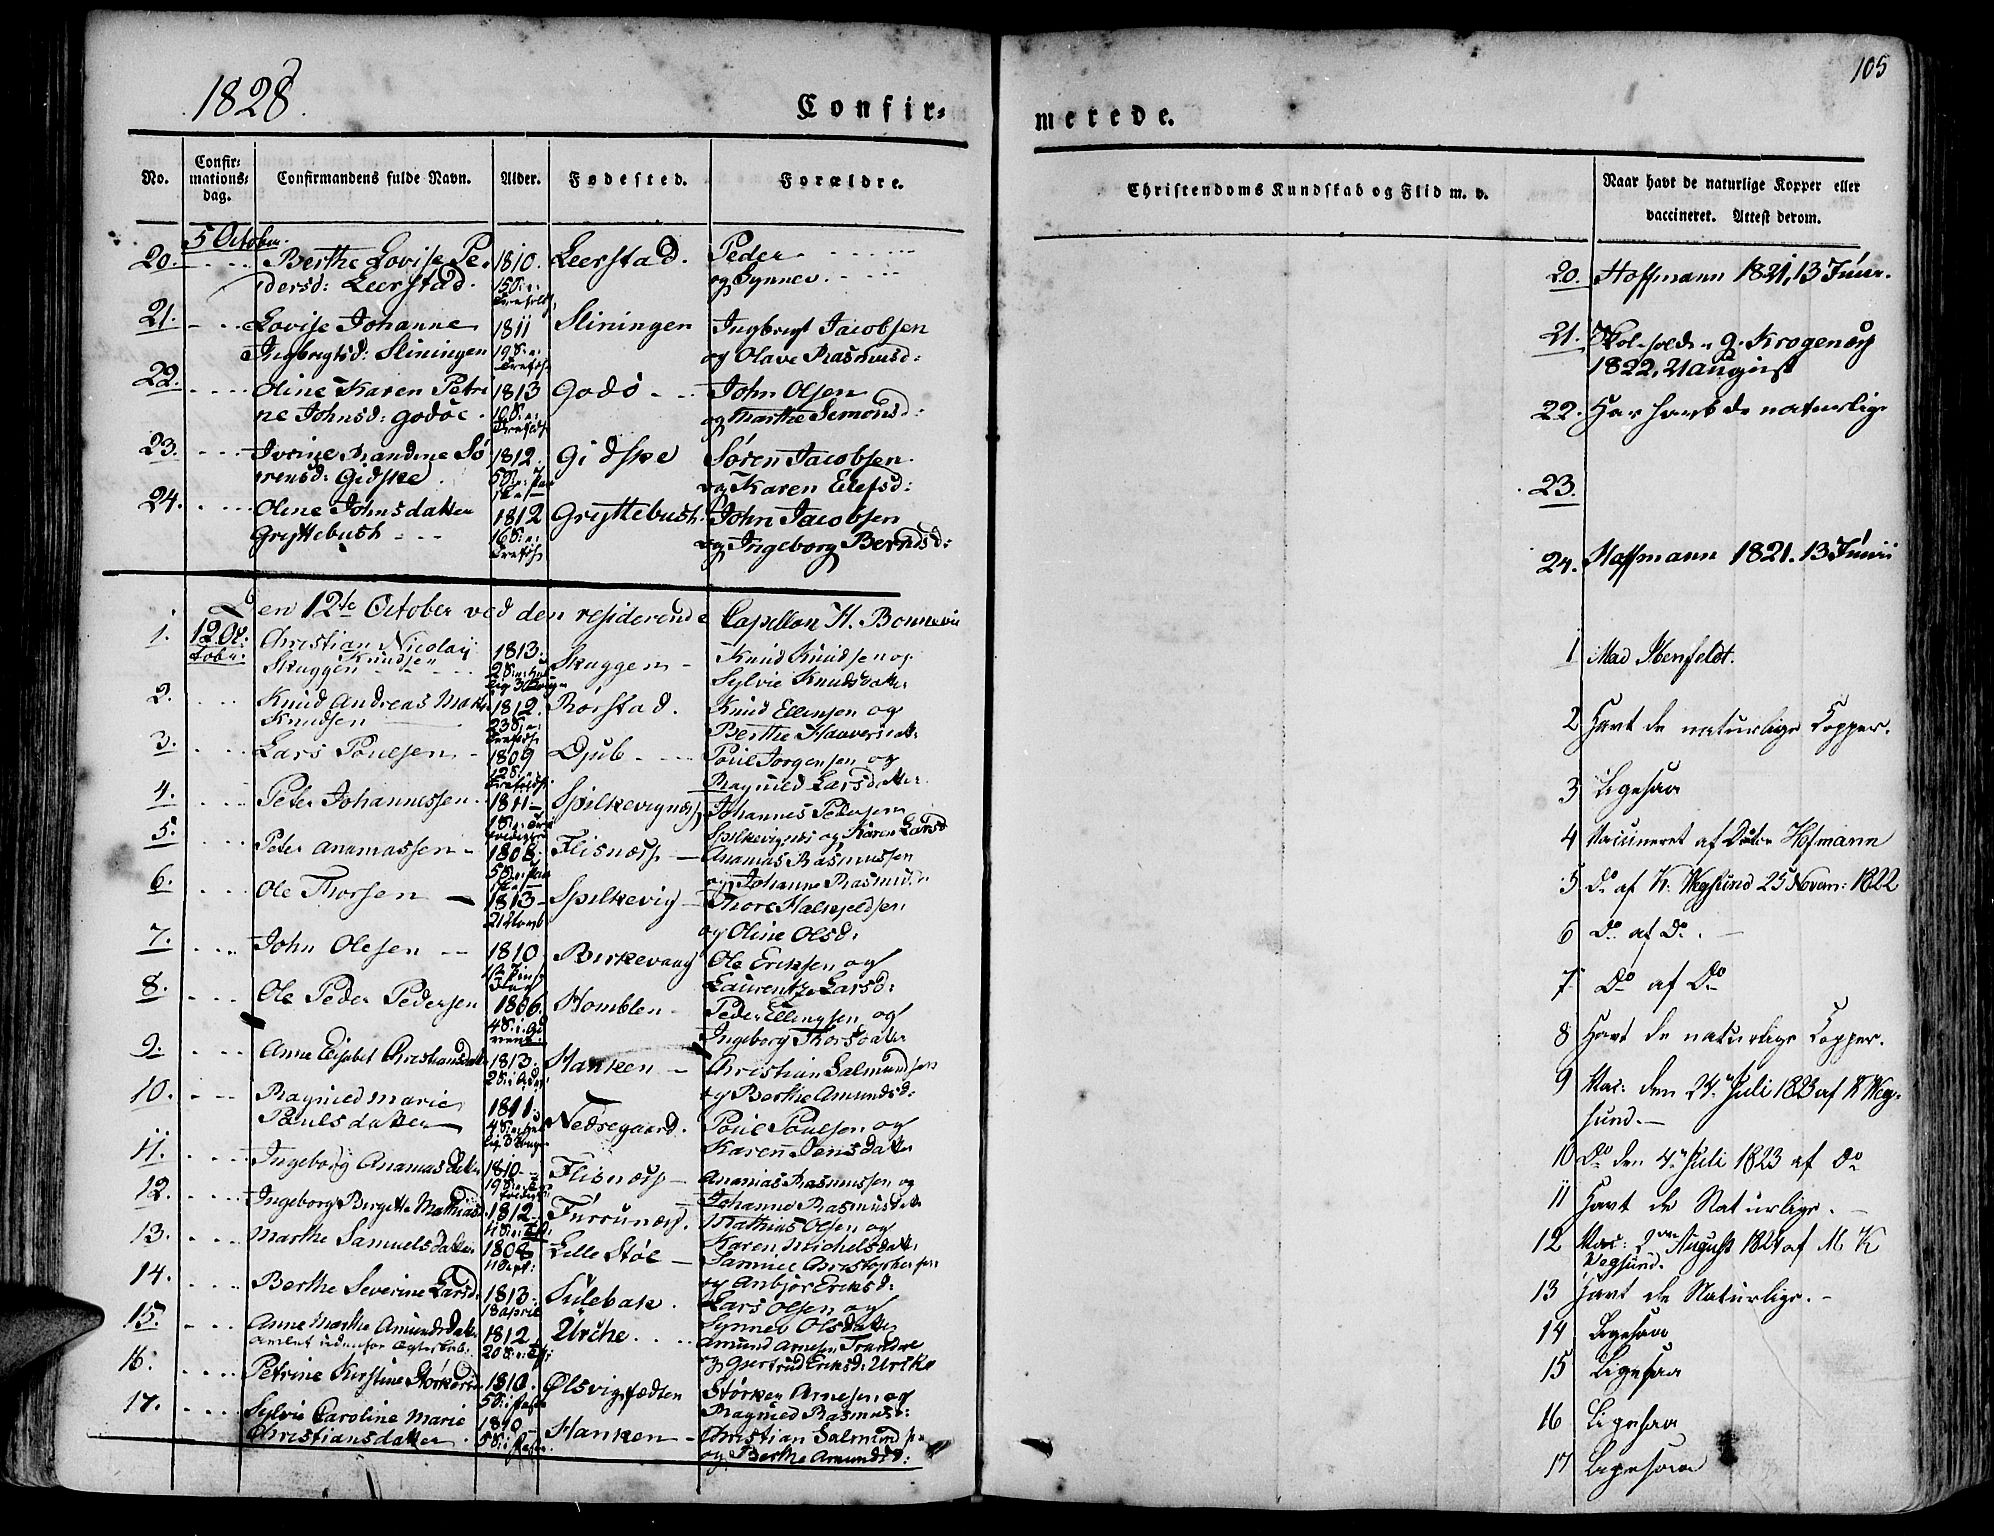 1828.
Confir=
merede.
105
No.
Confir=
mations=
dag.
Confirmandens fulde Navn.
Alder.
Fødested.
Forældre.
Christendoms Kundskab og Flid m. v.
Naar havt de naturlige Kopper eller
vaccineret. Attest derom.
5 October.
20. Berthe Lovise Pe- 1810. Leerstad. Peder
dersd: Leerstad. og Synnev
20. Hoffmann 1821, 13 Junii.
21. Lovise Johanne 1811 Sliningen Ingbregt Jacobsen
Ingbregtsd: Sliningen og Olave Rasmusd:
21. Krogenæs
1822, 21 August
22. Oline Karen Petri 1813 Godø John Olsen
ne Johnsd: Godøe. og Marthe Semonsd:
22. Har havt de naturlige
23. Ivrine Randine Sø 1812. Gidske Søren Jacobsen
rensd: Gidske. og Karen Elefsd:
23.
24. Oline Johnsdatter 1812 Gryttebush. John Jacobsen
Gryttebush og Ingeborg Berndsd:
24. Hoffmann 1821. 13 Junii
Den 12te October ved den residerende Capellan H. Bonnevie
1. 12 Oc: Christian Nicolay 1813. Skuggen Knud Knudsen og
tobr: Skuggen Knudsen Sylvie Knudsdatter
1 Mad Stenfeldt.
2. Knud Andreas 1812. Rørstad. Knud Ellensen og
Knudsen Berthe
2 Havt de naturlige Copper.
3. Lars Poulsen 1809 Djub Poul Jørgensen og
Ragnild Larsdatter
3 Ligesaa
4. Peter Johannessen 1811 Spilkevignæs Johannes Pedersen
Spilkevignæs og Karen Larsd
4 Vaccineret af Hofmann
5. Peter Ananiassen 1808. Flisnæss Ananias Rasmussen
og Johanne Rasmusd:
5 Do af K. Wegsund 25 Novem: 1822
6. Ole Thorsen 1813 Spilkevig Thore
21 Novb og Oline Olsd:
6 Do af Do.
7. John Olesen 1810 Birkevaag Ole Eriksen og
Laurentze Larsd:
7 Do af Do
8. Ole Peder Pedersen 1806 Homblen Peder Ellingsen og
Ingeborg Thorsdatter
8 Havt de naturlige Copper.
9. Anne Elisabet Christiansdatter 1813. Hanken Christian Salmundsen
og Berthe Amundsd:
9 Vac: den 24. Juli 1823 af K Weg-
sund.
10. Ragnild Marie 1811. Nedregaard. Poul Poulsen og
Poulsdatter Karen Jensdatter
10 Do den 4. Juli 1823 af Do
11. Ingeborg Ananiasdatter 1810 Flisnæss Ananias Rasmussen og
Johanne Rasmusdatter
11 Havt de Naturlige.
12. Ingeborg Bergitte Mathiasd: 1812. Furrunæss. Mathias Olsen og
Karen Michelsdatter
12 Vac: August 1824 af M K
Vegsund.
13. Marthe Samuelsdatter 1808 Lille Støl Samuel Christophersen
11 Sept: og Anbjør Eriksd:
13 Havt de Naturlige.
14. Berthe Severine Larsd: 1813. Sulebak. Lars Olsen og
18 april Synnev Olsdatter
14 Ligesaa
15. Anne Marthe Amundsdatter 1812 Urche Amund Arnesen Trandve
Avlet udenfor Egteskab. og Gjertrud Eriksd: Urche
15 Ligesaa
16. Petrine Kirstine Størkersd 1810. Ølsvigfædten Størker Arnesen og
Ragnild Rasmusd:
16 Ligesaa
17. Sylvie Caroline Marie 1810 Hanken Christian Salmundsen
Christiansdatter og Berthe Amundsd:
17 Ligesaa